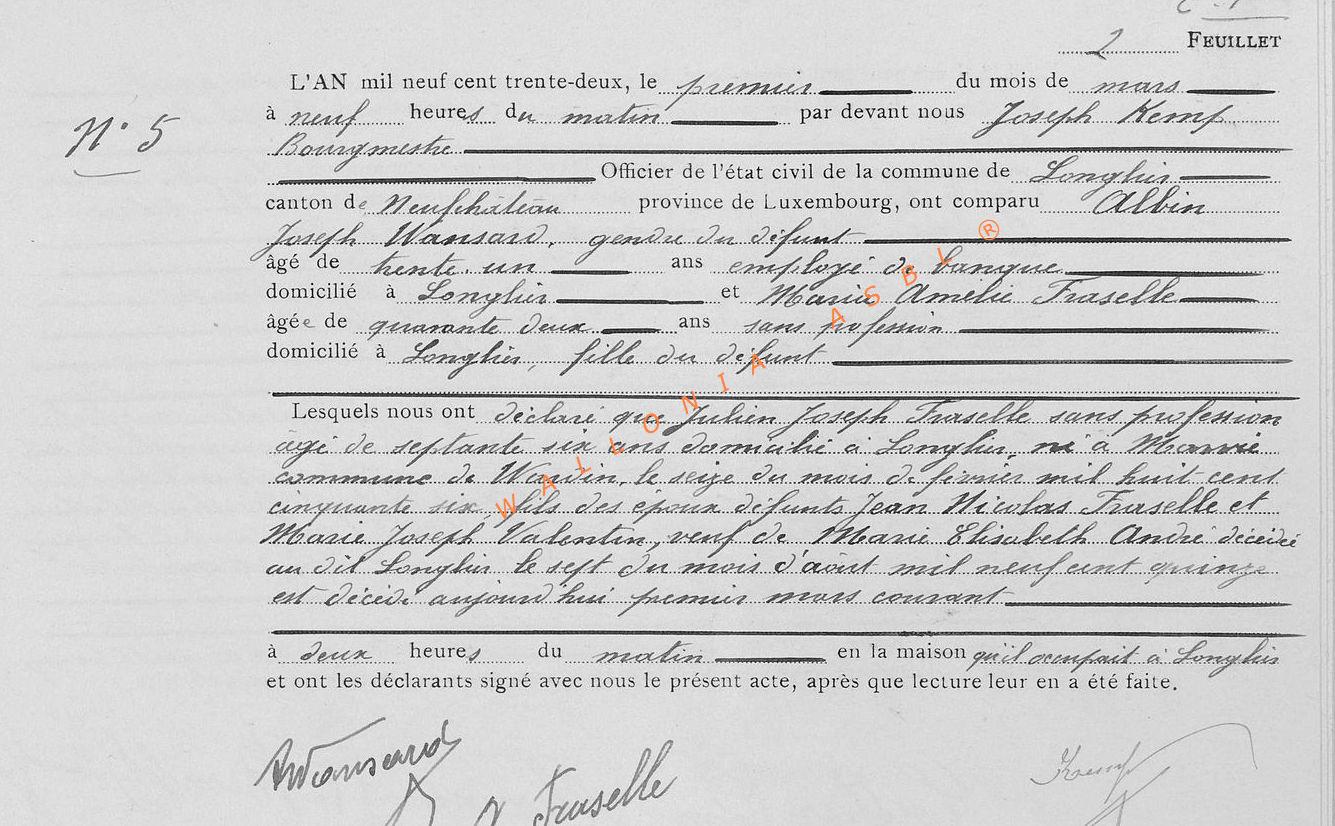 2 FEUILLET
L'AN mil neuf cent trente-deux, le premier du mois de mars
N° 5
à neuf heures du matin par devant nous Joseph Kemp
Bourgmestre
Officier de l'état civil de la commune de Longlier
canton de Neufchâteau province de Luxembourg, ont comparu Albin
Joseph Wansard, gendre du défunt
âgé de trente-un ans employé de banque
domicilié à Longlier et Marie Amélie Fraselle
âgée de quarante deux ans sans profession
domicilié à Longlier, fille du défunt
Lesquels nous ont déclaré que Julien Joseph Fraselle sans profession
âgé de septante six ans domicilié à Longlier, né à Marvie
commune de Wardin, le seize du mois de février mil huit cent
cinquante six, fils des époux défunts Jean Nicolas Fraselle et
Marie Joseph Valentin, veuf de Marie Elisabeth André décédée
au dit Longlier le sept du mois d'août mil neuf cent quinze
est décédé aujourd'hui premier mars courant
à deux heures du matin en la maison qu'il occupait à Longlier
et ont les déclarants signé avec nous le présent acte, après que lecture leur en a été faite.
AWansard
Fraselle
Kemp
WALLONIA ASBL ®